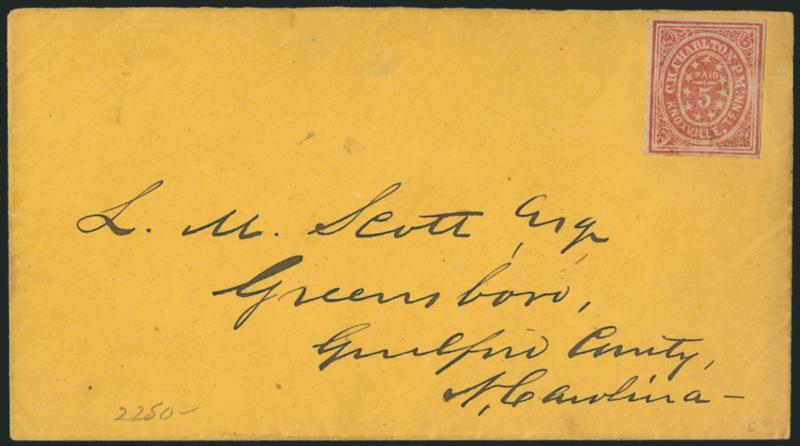 C.H. CHARLTON, P.M.
PAID
5
KNOXVILLE, TENN.
L. M. Scott, Esq
Greensboro,
Guilford County,
N. Carolina -
2250-